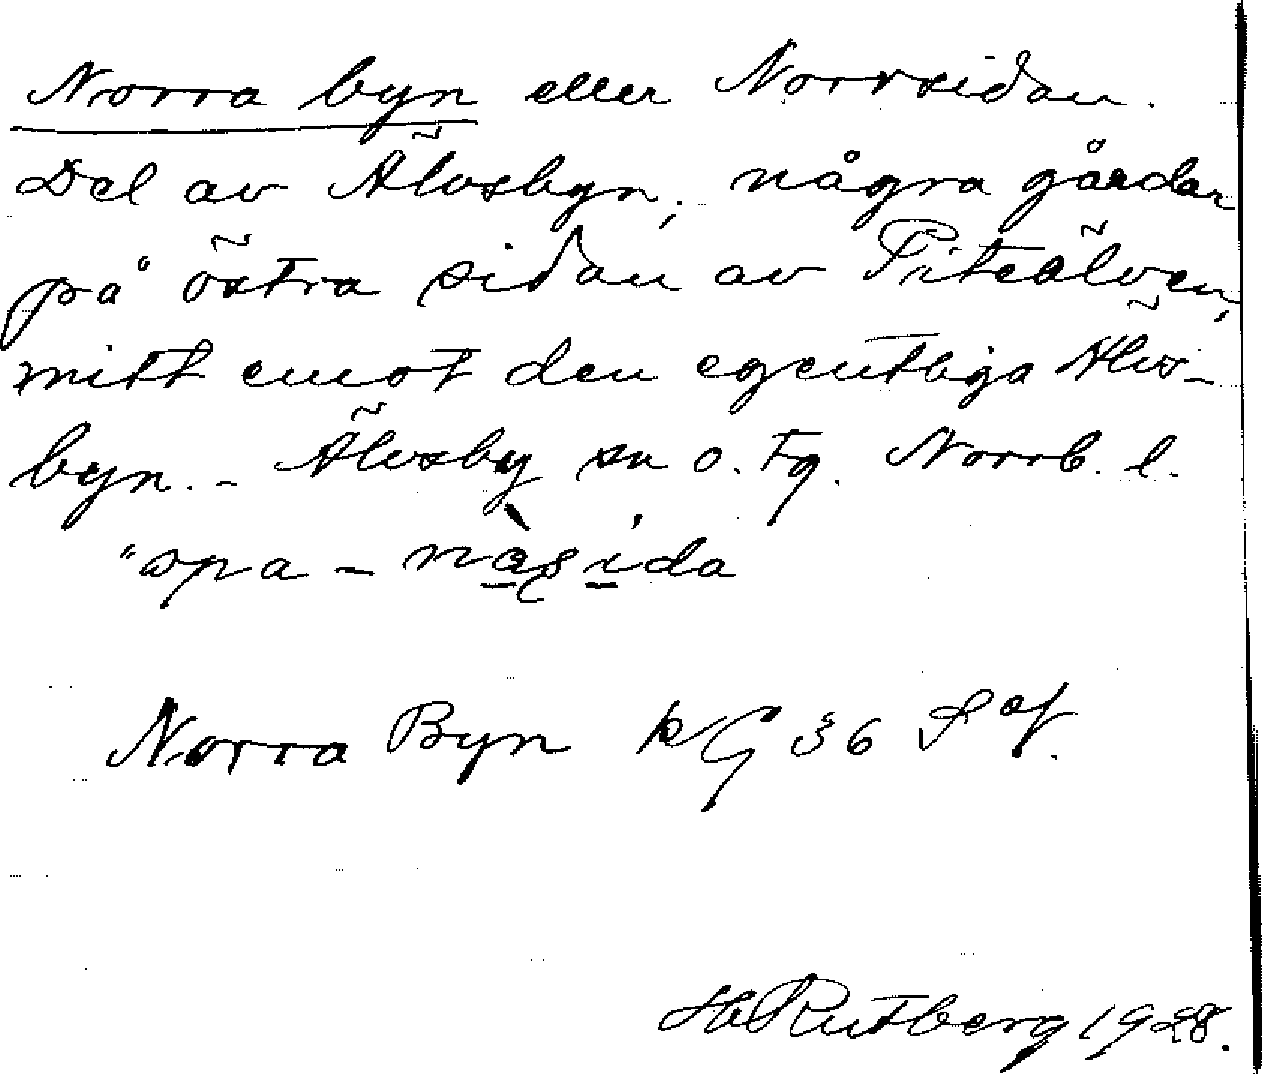 Norra byn eller Norrsidan.
Del av Älvsbyn, några gårdar
på östra sidan av Piteälven,
mitt emot den egentliga Älvs-
byn. - Älvsby sn o. tg. Norrb. l.
Norra Byn k G 36 S
H Rutberg 1928.